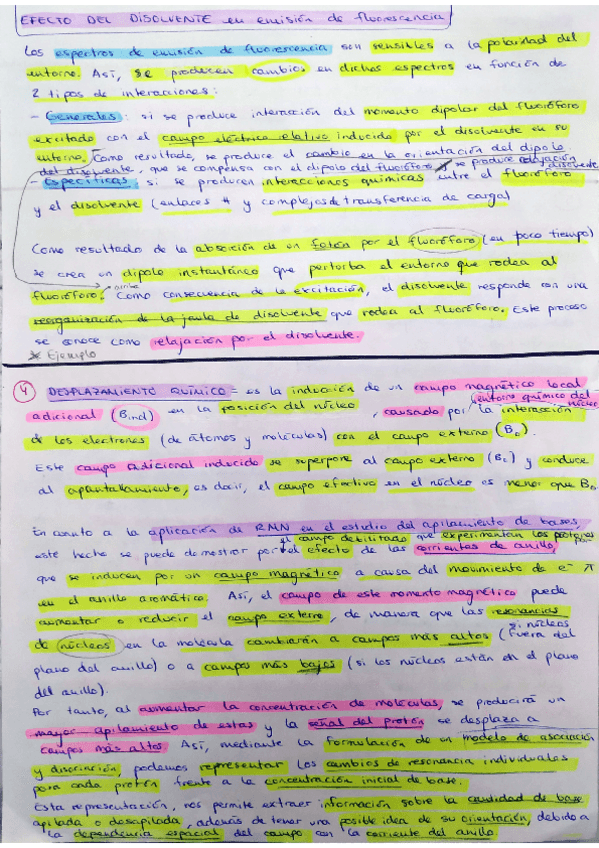 EFECTO DEL DISOLVENTE en emisión de fluorescencia
Los espectros de emisión de fluorescencia son sensibles a la polaridad del
entorno. Así, se producen cambios en dichos espectros en función de
2 tipos de interacciones:
- Generales: si se produce interacción del momento dipolar del fluoróforo
excitado con el campo eléctrico relativo inducido por el disolvente en su
entorno. Como resultado, se produce el cambio en la orientación del dipolo
del disolvente, que se compensa con el dipolo del fluoróforo y se produce relajación disolvente
- Específicas: si se producen interacciones químicas entre el fluoróforo
y el disolvente (enlaces H y complejos de transferencia de carga)
Como resultado de la absorción de un fotón por el fluoróforo (en poco tiempo)
se crea un dipolo instantáneo que perturba el entorno que rodea al
arriba
fluoróforo. Como consecuencia de la excitación, el disolvente responde con una
reorganización de la jaula de disolvente que rodea al fluoróforo. Este proceso
se conoce como relajación por el disolvente.
* Ejemplo
4 DESPLAZAMIENTO QUÍMICO = es la inducción de un campo magnético local
(entorno químico del núcleo)
adicional (Bind) en la posición del núcleo, causado por la interacción
de los electrones (de átomos y moléculas) con el campo externo (Bo).
Este campo adicional inducido se superpone al campo externo (Bo) y conduce
al apantallamiento, es decir, el campo efectivo en el núcleo es menor que Bo
En cuanto a la aplicación de RMN en el estudio del apilamiento de bases,
el campo debilitado que experimentan los protones por
este hecho se puede demostrar por el efecto de las corrientes de anillo,
que se inducen por un campo magnético a causa del movimiento de e- π
en el anillo aromático. Así, el campo de este momento magnético puede
aumentar o reducir el campo externo, de manera que las resonancias
de núcleos en la molécula cambiarán a campos más altos (si núcleos fuera del
plano del anillo) o a campos más bajos (si los núcleos están en el plano
del anillo).
Por tanto, al aumentar la concentración de moléculas, se producirá un
mayor apilamiento de estas y la señal del protón se desplaza a
campos más altos. Así, mediante la formulación de un modelo de asociación
y disociación, podemos representar los cambios de resonancia individuales
para cada protón frente a la concentración inicial de base.
Esta representación, nos permite extraer información sobre la cantidad de base
apilada o desapilada, además de tener una posible idea de su orientación, debido a
la dependencia espacial del campo con la corriente del anillo.